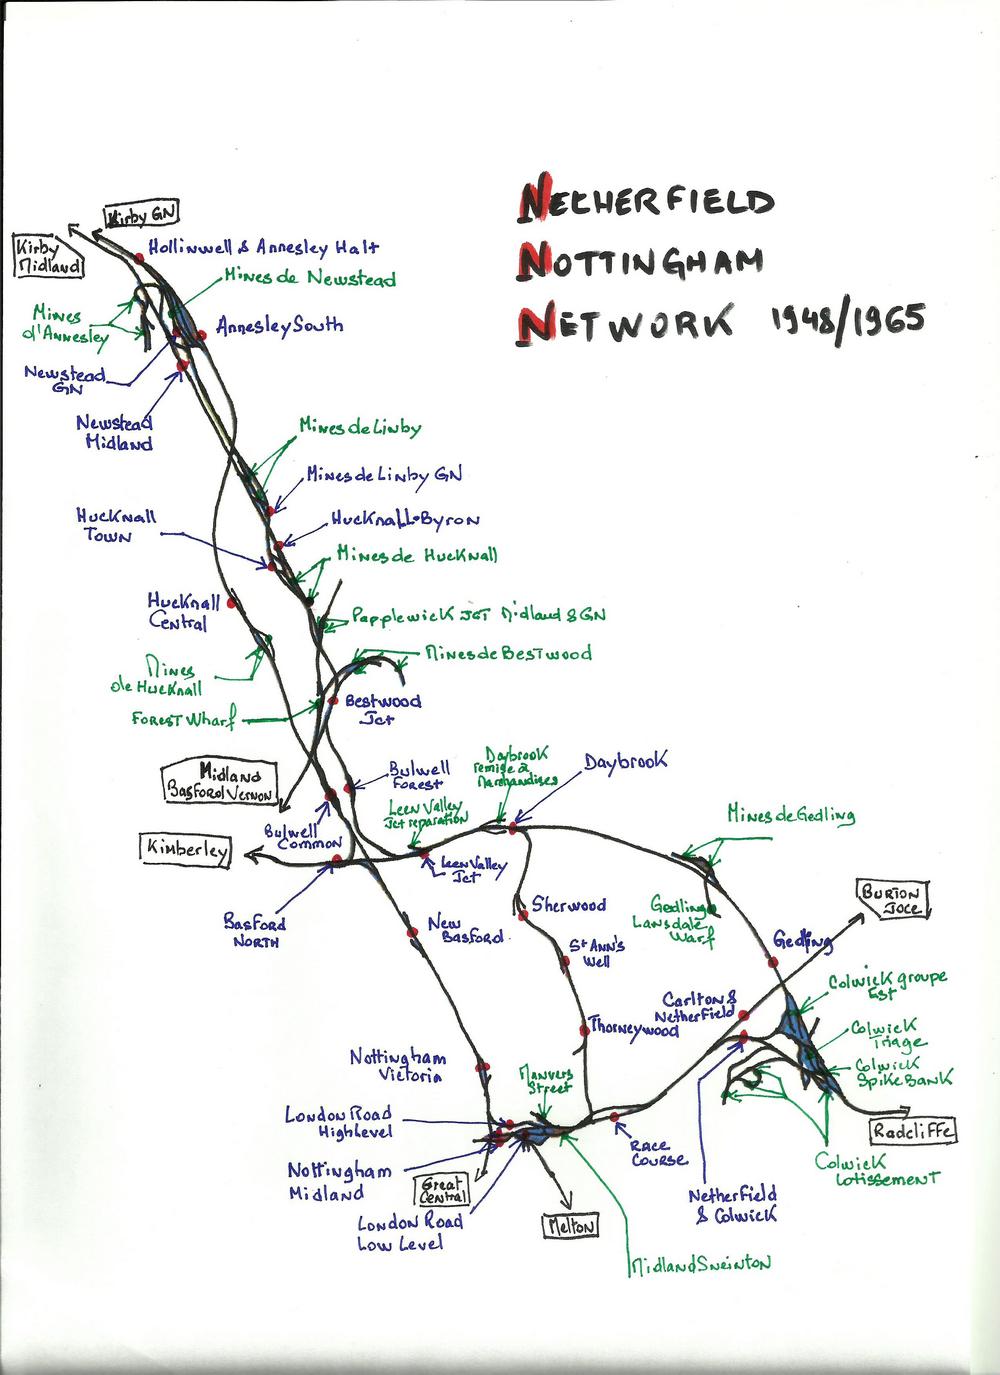 NETHERFIELD
NOTTINGHAM
NETWORK 1948/1965
Kirby GN
Kirby
Midland
Hollinwell & Annesley Halt
Mines de Newstead
Mines
d'Annesley
Annesley South
Newstead
GN
Newstead
Midland
Mines de Linby
Mines de Linby GN
Hucknall
Town
Hucknall-Byron
Mines de Hucknall
Hucknall
Central
Papplewick Jct Midland & GN
Mines de Bestwood
Mines
de Hucknall
Forest Wharf
Bestwood
Jct
Midland
Basford Vernon
Bulwell
Forest
Daybrook
remise a
Marchandises
Daybrook
Leen Valley
Jct reparation
Mines de Gedling
Bulwell
Common
Kimberley
Leen Valley
Jct
Burton
Joce
Basford
North
New
Basford
Sherwood
Gedling
Lansdale
Warf
St Ann's
Well
Gedling
Colwick groupe
Est
Carlton &
Netherfield
Thorneywood
Colwick
Triage
Nottingham
Victoria
Manvers
Street
Colwick
Spike Bank
London Road
High Level
Radcliffe
Race
Course
Nottingham
Midland
Great
Central
Colwick
Lotissement
Netherfield
& Colwick
London Road
Low Level
Melton
Midland Sneinton